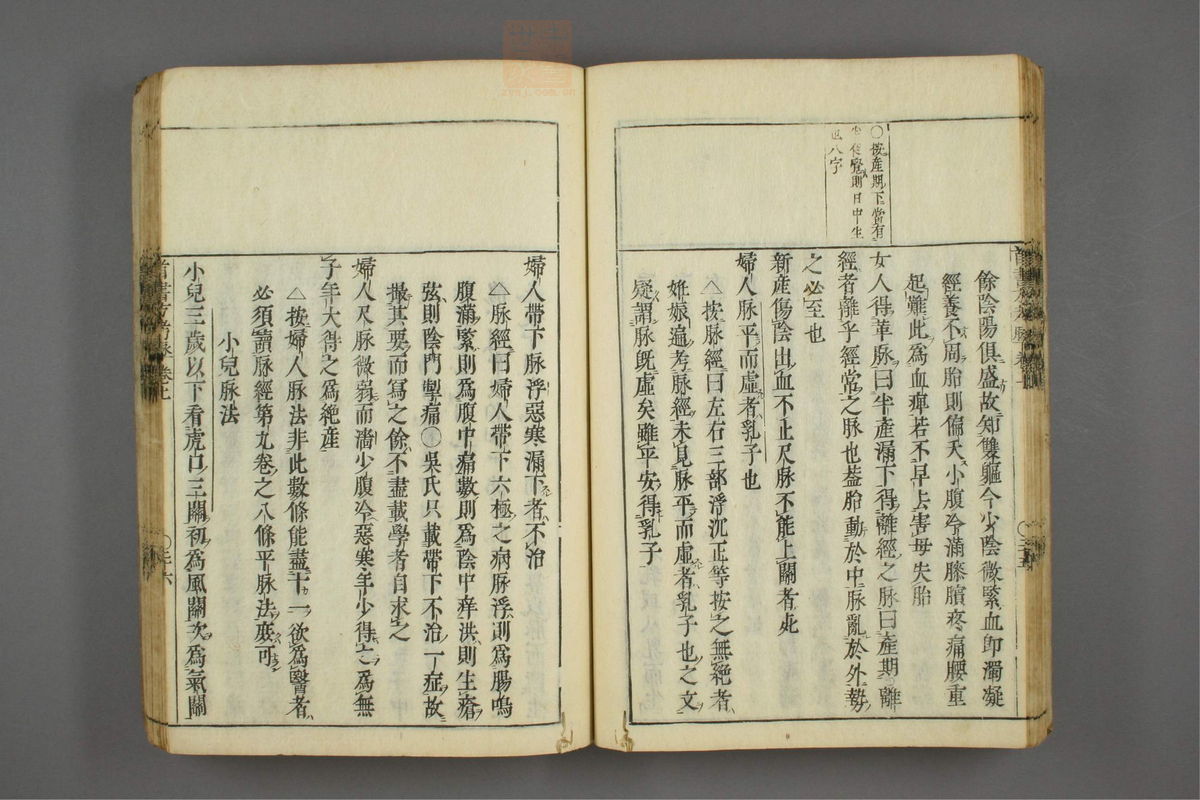 ○按產期下當有
也八字
餘陰陽俱盛故知雙軀今少陰微緊血即濁凝
經養不周胎則偏夭小腹冷滿膝臏疼痛腰重
起難此為血痺若不早去害母失胎
女人得革脉曰半產漏下得離經之脉曰產期離
經者離乎經常之脉也盖胎動於中脉亂於外勢
之必至也
新產傷陰出血不止尺脉不能上關者死
婦人脉平而虛者乳子也
△按脉經曰左右三部浮沉正等按之無絶者
妊娠遍考脉經未見脉平而虛者乳子也之文
疑謂脉旣虛矣雖平安得乳子
婦人帶下脉浮惡寒漏下者不治
△脉經曰婦人帶下六極之病脉浮則爲腸鳴
腹滿緊則爲腹中痛數則爲陰中痒洪則生瘡
弦則陰門掣痛○吳氏只載帶下不治一症故
撮其要而寫之餘不盡載學者自求之
婦人尺脉微弱而濇少腹冷惡寒年少得之爲無
子年大得之爲絶產
△按婦人脉法非此數條能盡干一欲爲醫者
必須讀脉經第九卷之八條平脉法庶可
小兒脉法
小兒三歲以下看虎口三關初爲風關次爲氣關